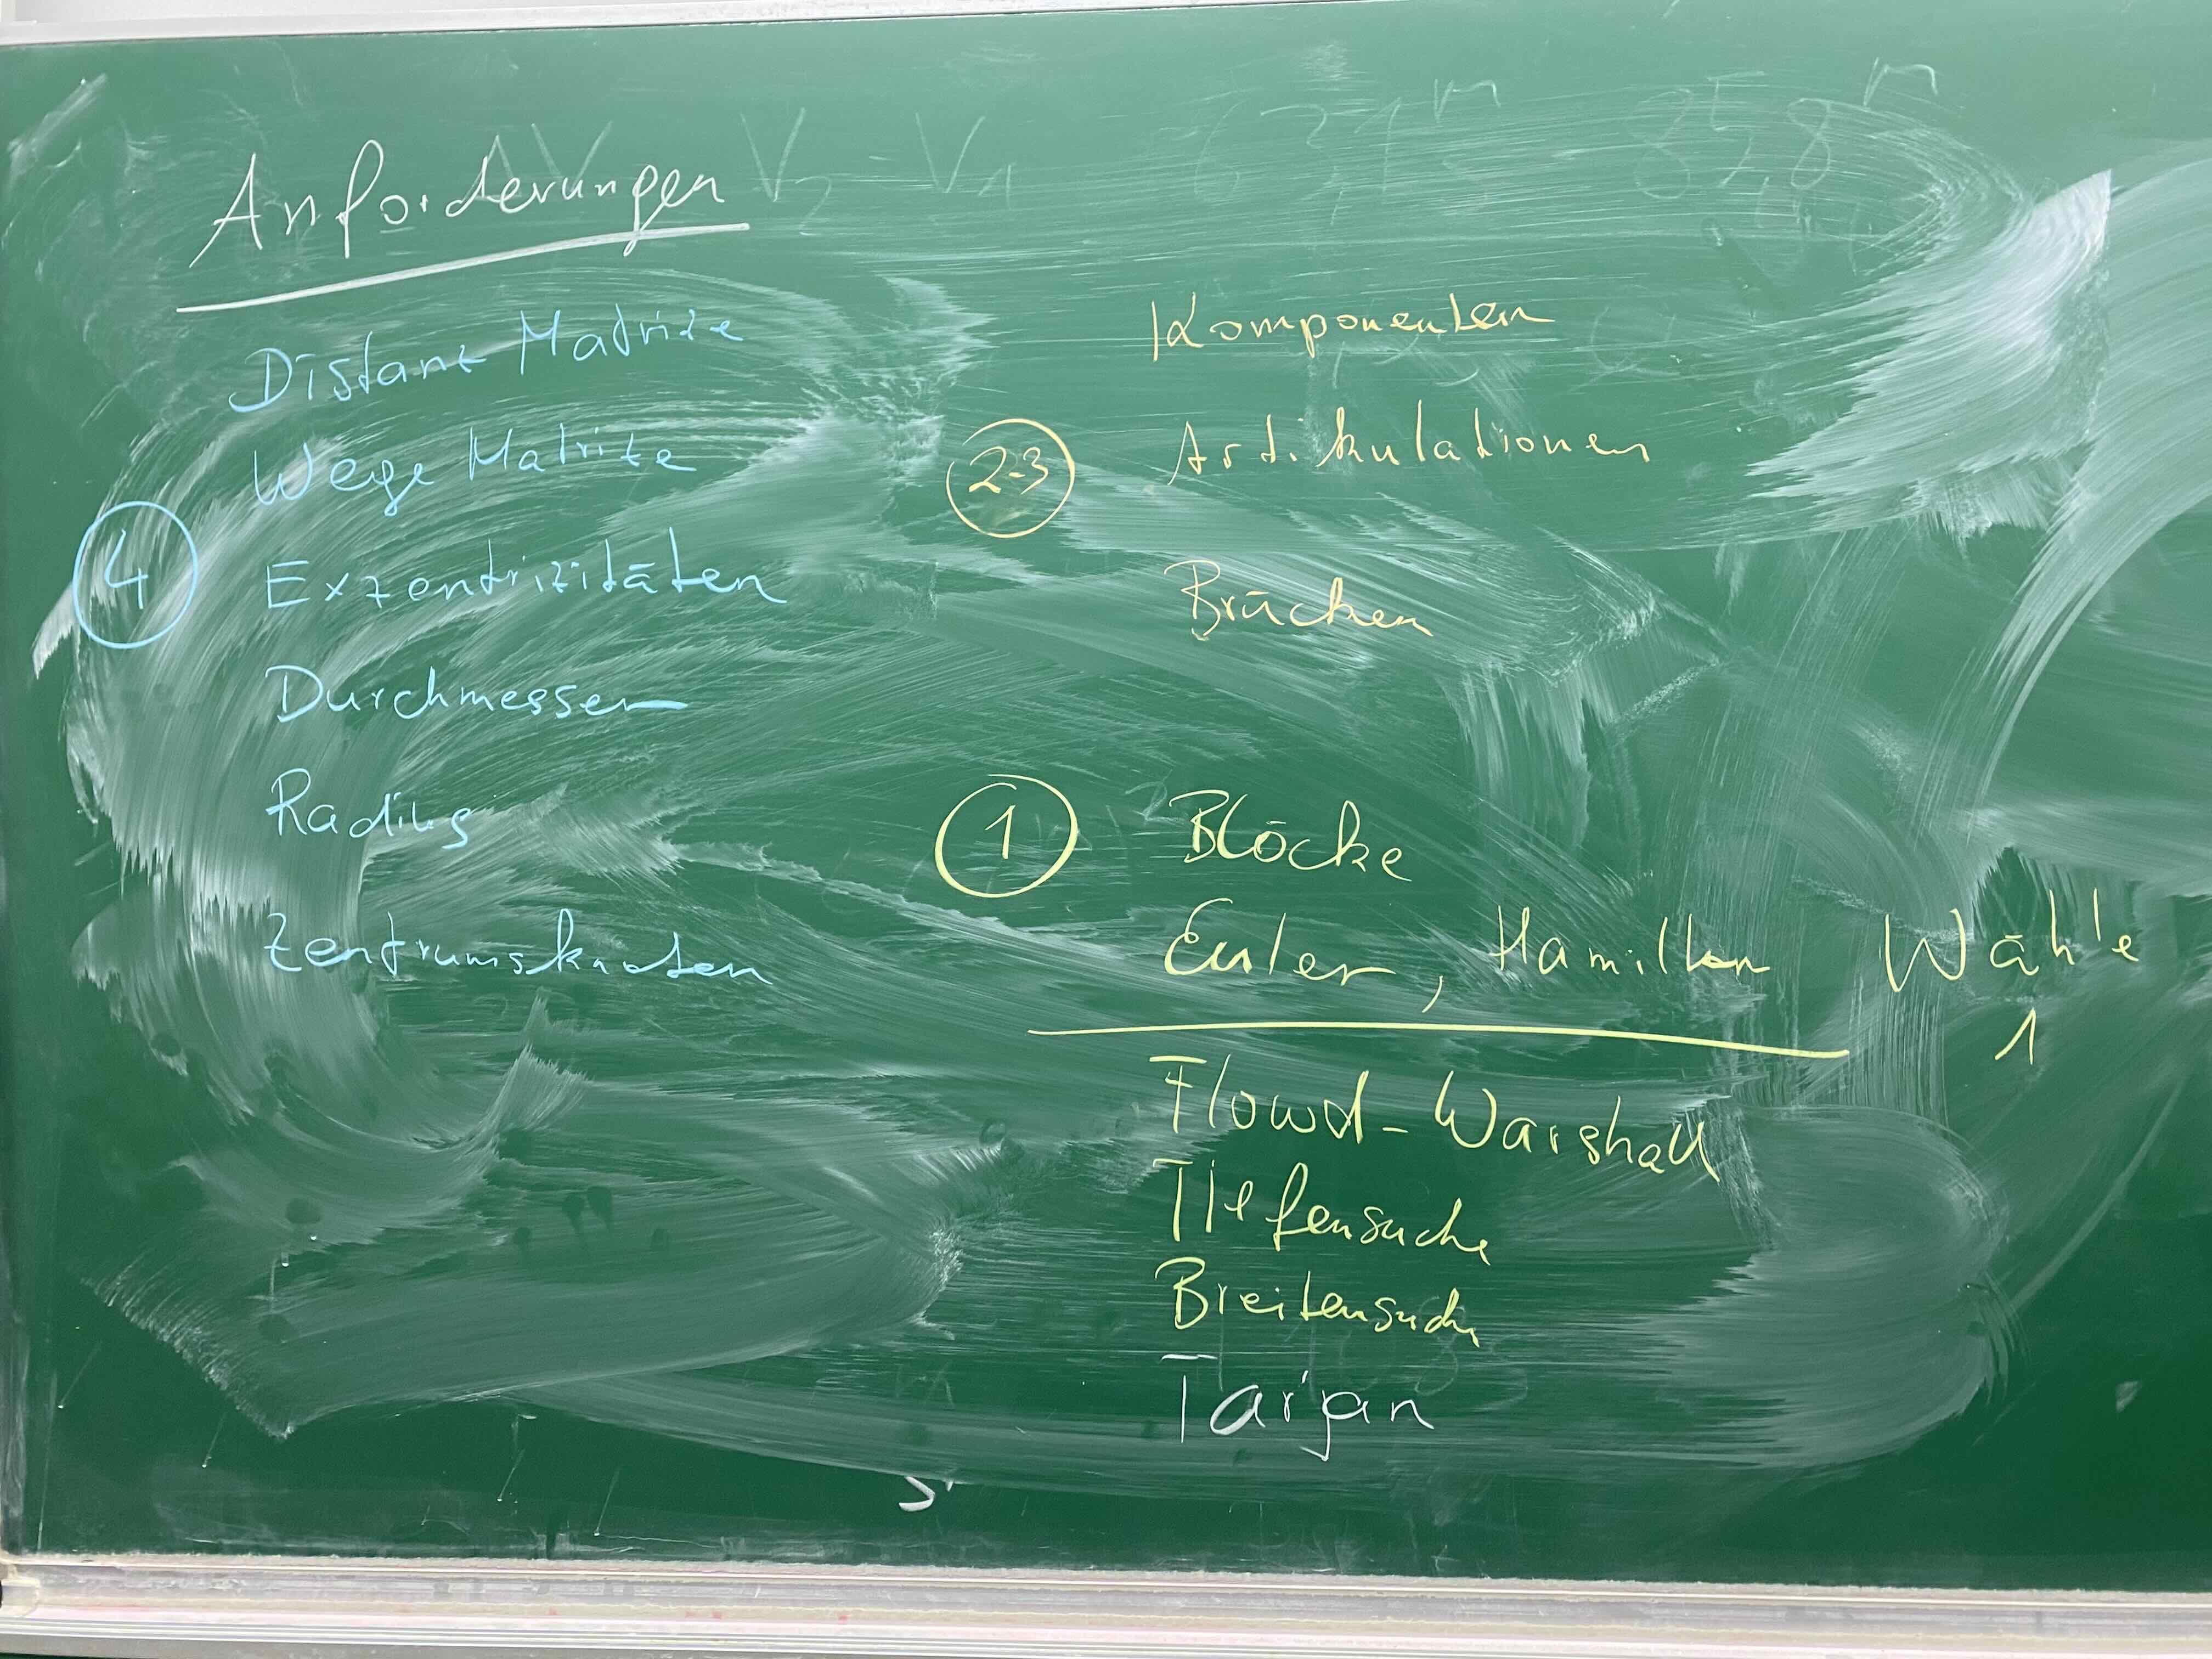 Anforderungen
Distanz Matrize
Wege Matrize
4
Exzentrizitäten
Durchmesser
Radius
Zentrumsknoten
Komponenten
2-3
Artikulationen
Brücken
1
Blöcke
Euler, Hamilton Wähle
1
Flowd-Warshall
Tiefensuche
Breitensuche
Tarjan